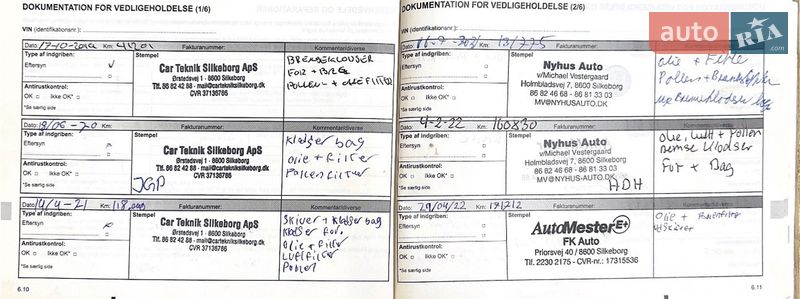 DOKUMENTATION FOR VEDLIGEHOLDELSE (1/6)
VIN (identifikationsnr.):
Dato: 17-10-2019 Km: 41201 Fakturanummer: Kommentar/diverse
Type af indgriben:
Eftersyn
Antirustkontrol:
OK Ikke OK*
*Se særlig side
Stempel
Car Teknik Silkeborg ApS
Ørstedsvej 1 - 8600 Silkeborg
Tlf. 86 82 42 88 - mail@carteknisilkeborg.dk
CVR 37136786
BREMSEKLODSER
FOR + BAG
POLLEN - OLIEFILTER
Dato: 18/06-20 Km: Fakturanummer: Kommentar/diverse
Type af indgriben:
Eftersyn
Antirustkontrol:
OK Ikke OK*
*Se særlig side
Stempel
Car Teknik Silkeborg ApS
Ørstedsvej 1 - 8600 Silkeborg
Tlf. 86 82 42 88 - mail@carteknisilkeborg.dk
CVR 37136786
Klodser bag
olie + filter
Pollenfilter
Dato: 14/4-21 Km: 118.000 Fakturanummer: Kommentar/diverse
Type af indgriben:
Eftersyn
Antirustkontrol:
OK Ikke OK*
*Se særlig side
Stempel
Car Teknik Silkeborg ApS
Ørstedsvej 1 - 8600 Silkeborg
Tlf. 86 82 42 88 - mail@carteknisilkeborg.dk
CVR 37136786
Skiver + Klodser bag
Klodser for.
Olie + filter
Luftfilter
Pollen
6.10
DOKUMENTATION FOR VEDLIGEHOLDELSE (2/6)
VIN (identifikationsnr.):
Dato: Km: Fakturanummer:
Type af indgriben:
Eftersyn
Antirustkontrol:
OK Ikke OK*
*Se særlig side
Stempel
Nyhus Auto
v/Michael Vestergaard
Holmbladsvej 7, 8600 Silkeborg
86 82 46 68 - 86 81 33 03
MV@NYHUSAUTO.DK
olie + Filtre
Dato: 4-2-22 Km: 160830 Fakturanummer: Kommentar/diverse
Type af indgriben:
Eftersyn
Antirustkontrol:
OK Ikke OK*
*Se særlig side
Stempel
Nyhus Auto
v/Michael Vestergaard
Holmbladsvej 7, 8600 Silkeborg
86 82 46 68 - 86 81 33 03
MV@NYHUS-AUTO.DK
ADH
Olie, luft + Pollen
Bemse Klodser
For + Bag
Dato: 29/04/22 Km: 171212 Fakturanummer: Kommentar/diverse
Type af indgriben:
Eftersyn
Antirustkontrol:
OK Ikke OK*
*Se særlig side
Stempel
AutoMester E+
FK Auto
Priorsvej 40 / 8600 Silkeborg
Tlf. 2230 2175 - CVR-nr.: 17315536
Olie +
6.11
auto RIA.com